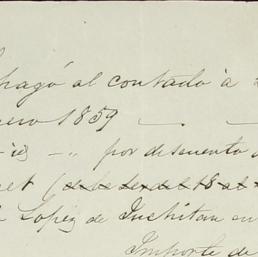 pagó al contado à
ero 1859 — . —
" por descuento
et (debe ser del 18 al
Lopez de Juchitan en
Importe de